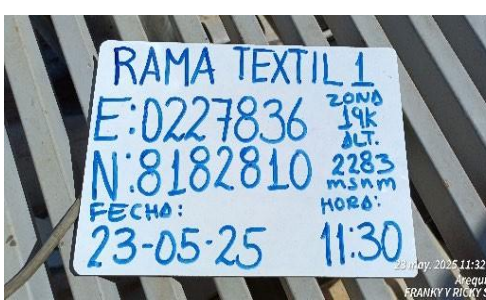 RAMA TEXTIL 1
E:0227836
N:8182810
ZONA
19K
ALT.
2283
msnm
FECHA:
23-05-25
HORA:
11:30
23 may. 2025 11:32
Arequi
FRANKY Y RICKY S